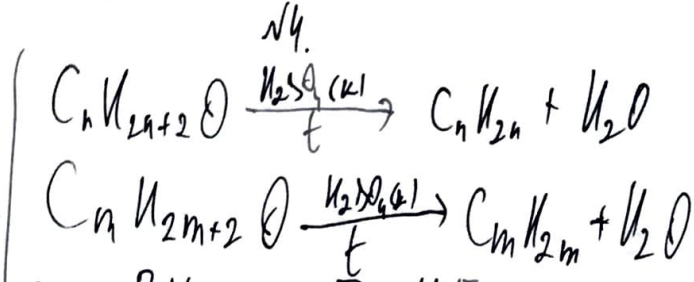 №4.
CₙH₂ₙ₊₂O —H₂SO₄(к)/t→ CₙH₂ₙ + H₂O
CₘH₂ₘ₊₂O —H₂SO₄(к)/t→ CₘH₂ₘ + H₂O